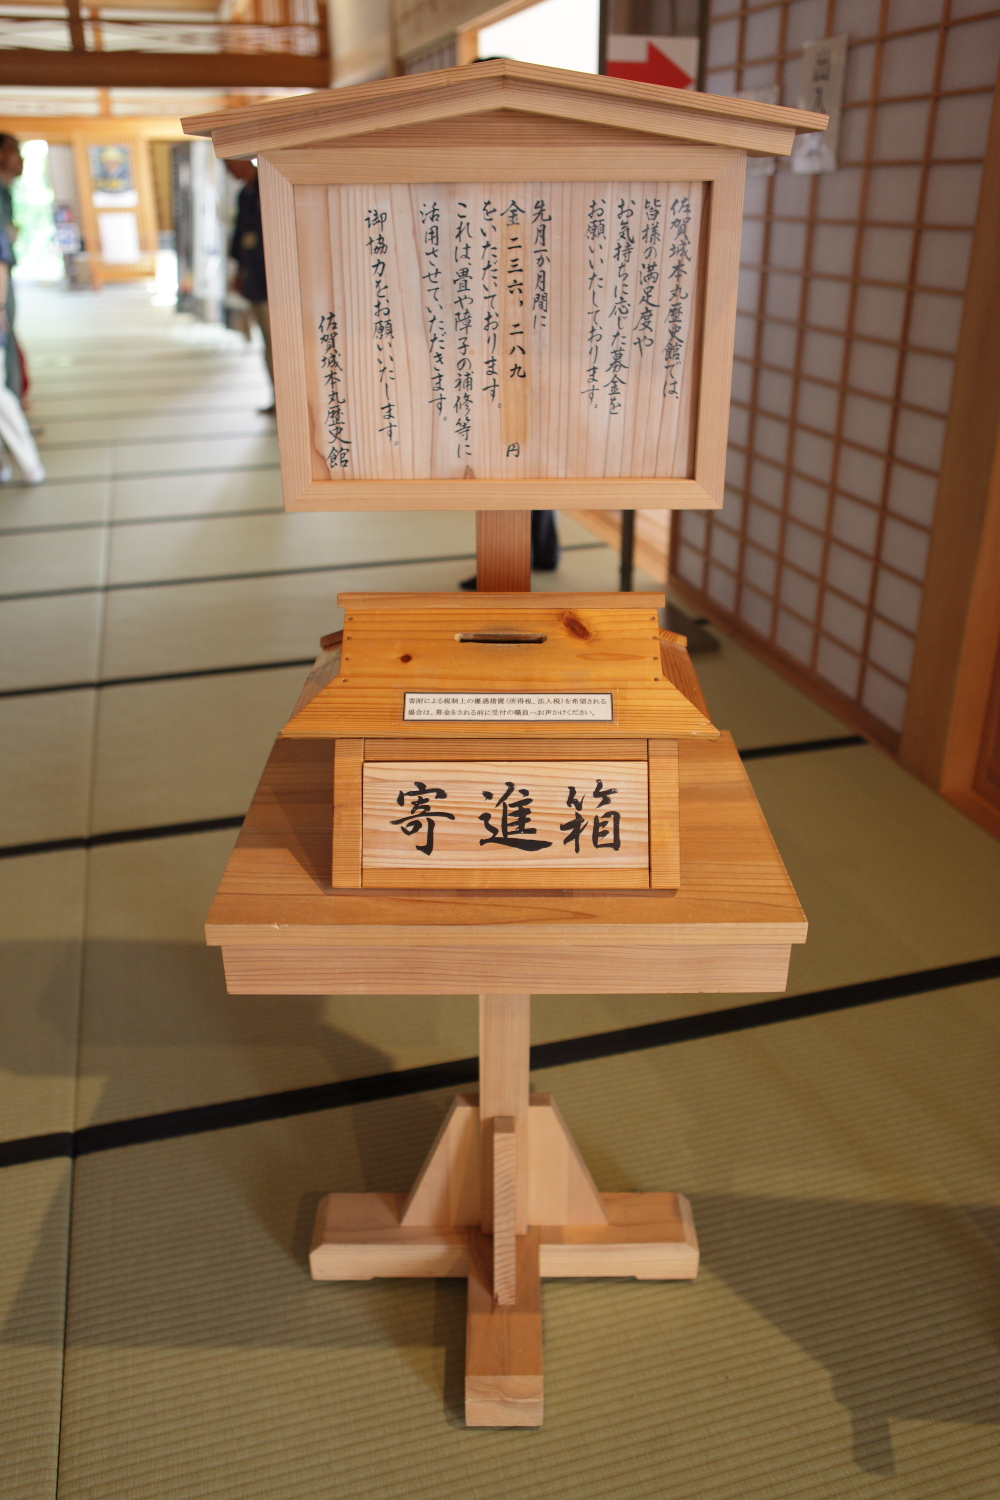 佐賀城本丸歴史館では、
皆様の満足度や
お気持ちに応じた募金を
お願いいたしております。
先月一か月間に
金二三六，二八九　円
をいただいております。
これは、畳や障子の補修等に
活用させていただきます。
御協力をお願いいたします。
佐賀城本丸歴史館
寄附による税制上の優遇措置(所得税、法人税)を希望される
場合は、募金をされる前に受付の職員へお声かけください。
寄進箱